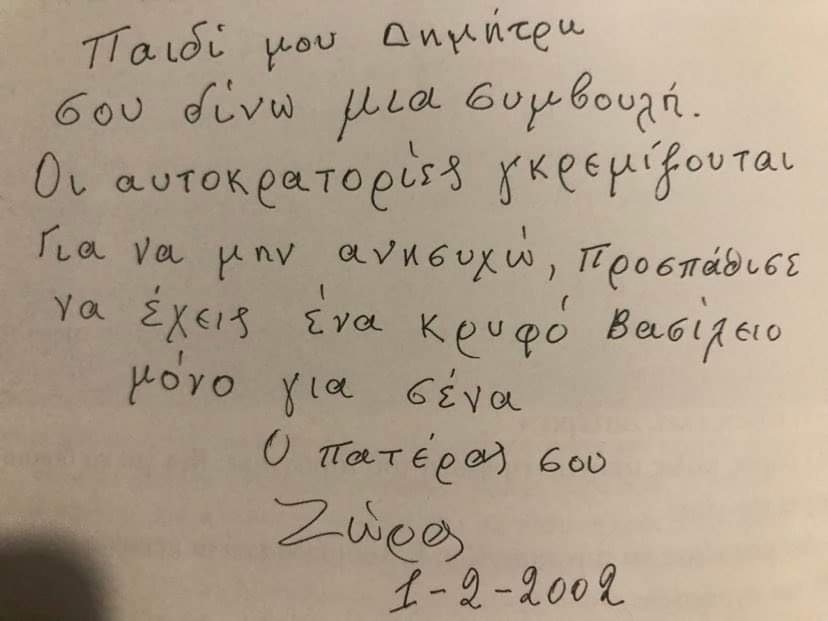 Παιδί μου Δημήτρη
σου δίνω μια συμβουλή.
Οι αυτοκρατορίες γκρεμίζουται
Για να μην ανησυχώ, προσπάθισε
να έχεις ένα κρυφό Βασίλειο
μόνο για σένα
Ο πατέρας σου
Ζώρας
1-2-2002